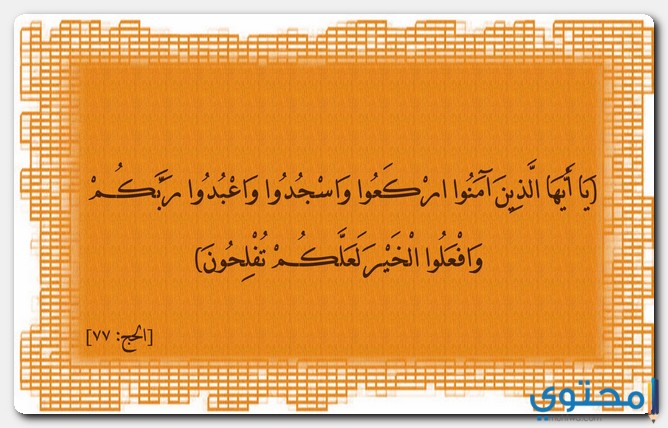 (يَا أَيُّهَا الَّذِينَ آمَنُوا ارْكَعُوا وَاسْجُدُوا وَاعْبُدُوا رَبَّكُمْ
وَافْعَلُوا الْخَيْرَ لَعَلَّكُمْ تُفْلِحُونَ)
[الحج: ٧٧]
محتوي